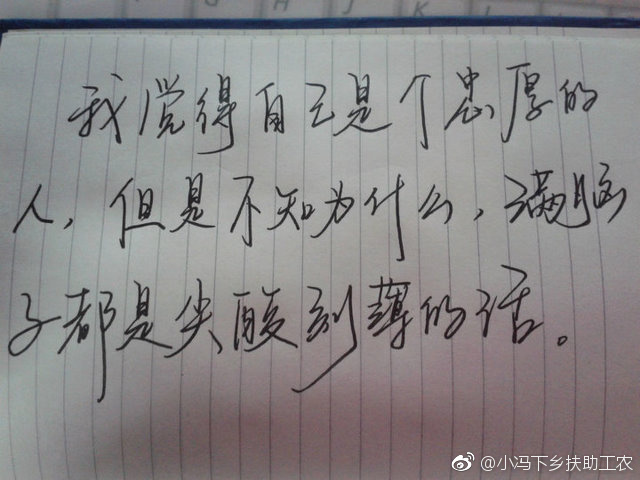 我觉得自己是个忠厚的
人，但是不知为什么，满脑
子都是尖酸刻薄的话。
@小冯下乡扶助工农